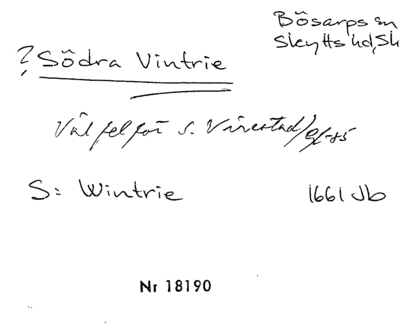 Bösarps sn
Skytts hd, Sk
? Södra Vintrie
Väl fel för S. Virestad/
S: Wintrie 1661 Jb
Nr 18190